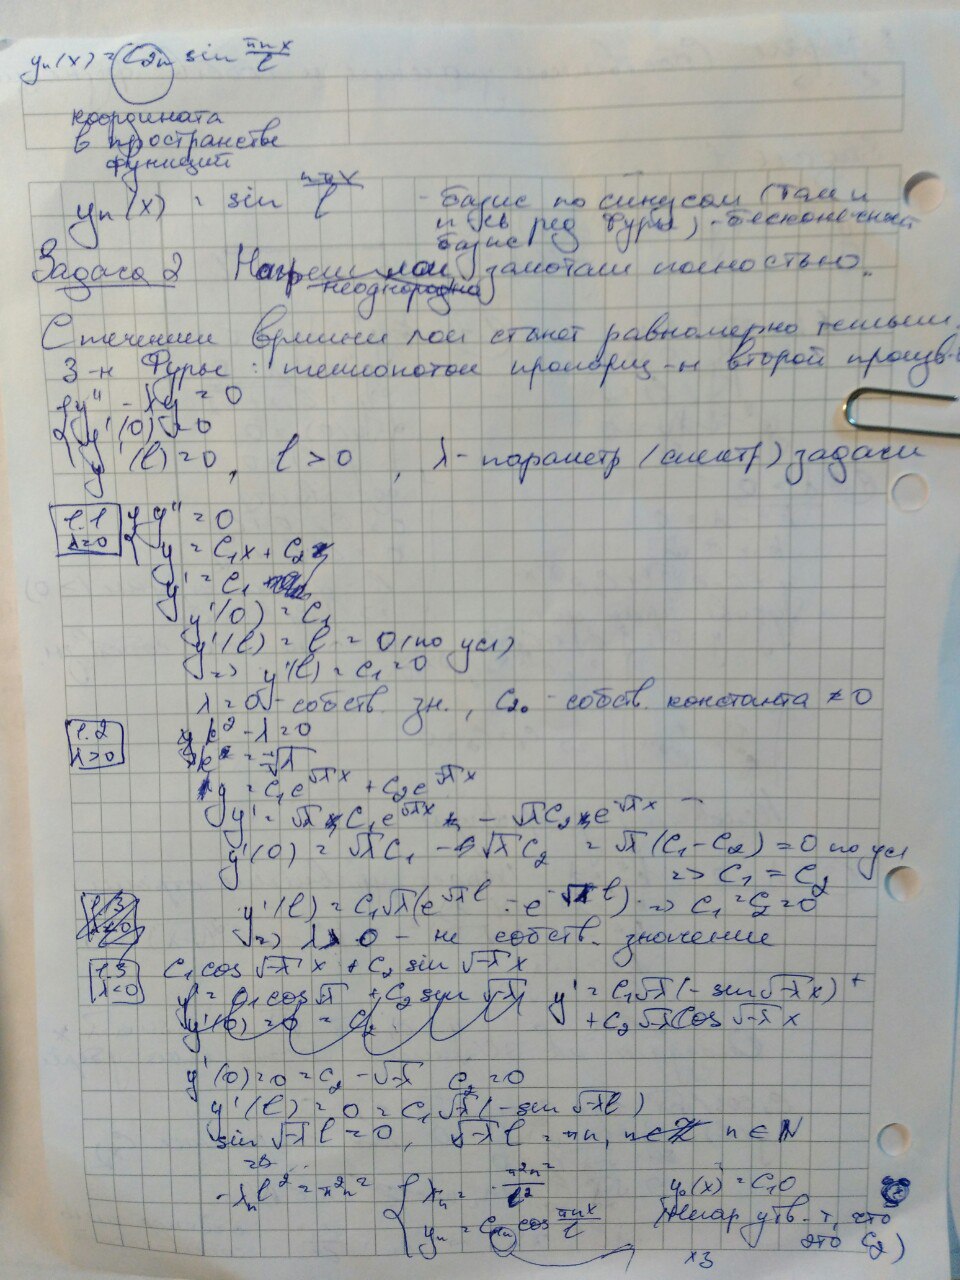 yₙ(x) = C₂ₙ sin πnx/l
координата
в пространстве
функций
yₙ(x) = sin πnx/l - базис по синусом (там и
ряд Фурье) - бесконечный
базис
Задача 2 Нагрели лом замотали полностью.
неоднородно
С течением времени лом станет равномерно теплым.
З-н Фурье: теплопоток пропорц-н второй произв-
{ y'' - λy = 0
y'(0) = 0
y'(l) = 0, l > 0, λ - параметр (спектр) задачи
1.1 λ=0 { y'' = 0
y = C₁x + C₂
y' = C₁
y'(0) = C₁
y'(l) = l = 0 (по усл)
=> y'(l) = C₁ = 0
λ = 0 - собств. зн., C₂₀ - собств. константа ≠ 0
1.2 λ>0 k² - λ = 0
k = ±√λ
y = C₁e^√λx + C₂e^-√λx
y' = √λ C₁e^√λx - √λC₂e^-√λx
y'(0) = √λC₁ - √λC₂ = √λ(C₁ - C₂) = 0 по усл
=> C₁ = C₂
y'(l) = C₁√λ(e^√λl - e^-√λl) => C₁ = C₂ = 0
=> λ > 0 - не собств. значение
1.3 λ<0 C₁cos √-λ x + C₂ sin √-λ x
y' = C₁√-λ(-sin√-λx) +
+ C₂√-λ cos √-λ x
y'(0) = 0 = C₂ √-λ C₂ = 0
y'(l) = 0 = C₁√-λ(-sin √-λl)
sin √-λ l = 0, √-λ l = πn, n ∈ N
=>
-λₙl² = π²n²
{ λₙ = -π²n²/l²
yₙ = C₁ₙ cos πnx/l
y₀(x) = C₁₀
что
это C₂)
x3